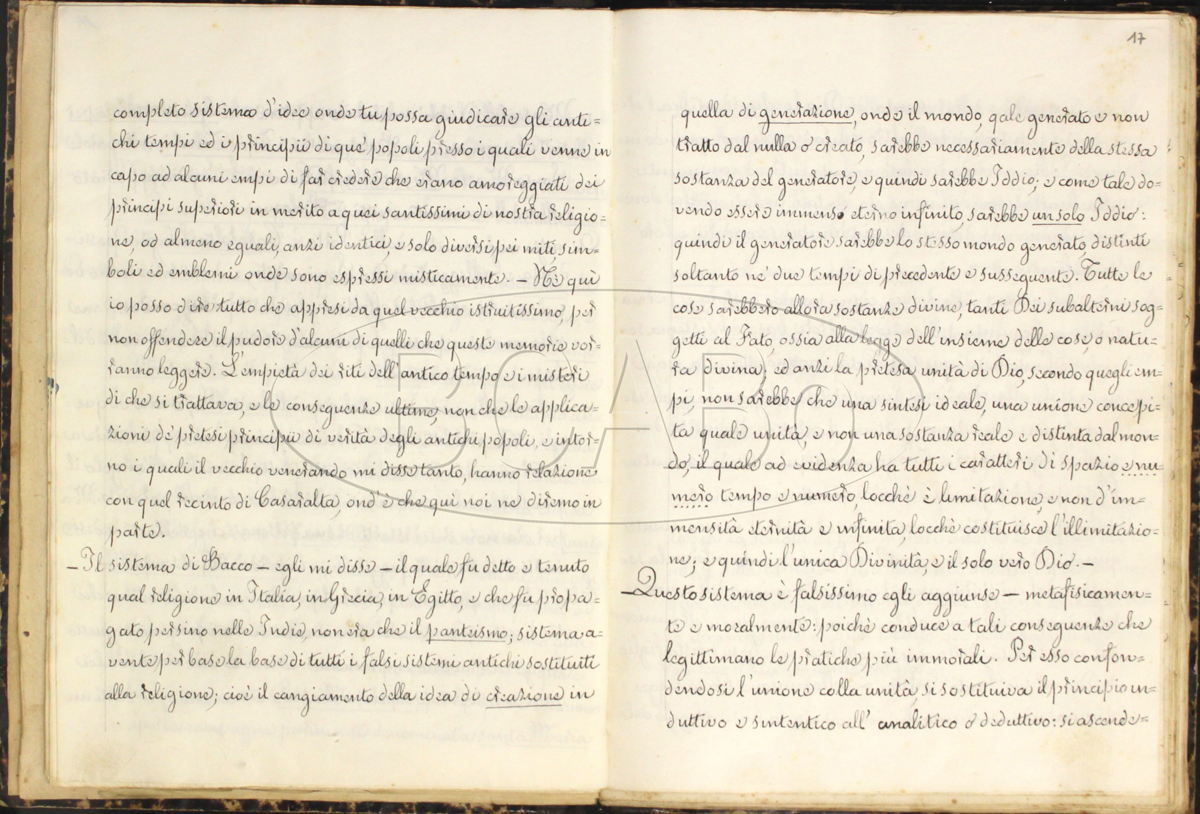 completo sistema d'idee onde tu possa giudicare gli anti=
chi tempi ed i principii di que' popoli presso i quali venne in
capo ad alcuni empi di far credere che erano amoreggiati dei
principi superiori in merito a quei santissimi di nostra religio=
ne, od almeno eguali, anzi identici, e solo diversi pei miti, sim=
boli ed emblemi onde sono espressi misticamente. — Nè quì
io posso dire tutto che appresi da quel vecchio istruitissimo, per
non offendere il pudore d'alcuni di quelli che queste memorie vor=
ranno leggere. L'empietà dei riti dell'antico tempo e i misteri
di che si trattava, e le conseguenze ultime, non che le applica=
zioni de' pretesi principii di verità degli antichi popoli, e intor=
no i quali il vecchio venerando mi disse tanto, hanno relazione
con quel recinto di Casaralta, ond'è che quì noi ne diremo in
parte.
— Il sistema di Bacco — egli mi disse — il quale fu detto e tenuto
qual religione in Italia, in Grecia, in Egitto, e che fu propa=
gato persino nelle Indie, non era che il panteismo; sistema a=
vente per base la base di tutti i falsi sistemi antichi sostituiti
alla religione; cioè il cangiamento della idea di creazione in
17
quella di generazione, onde il mondo, qale generato e non
tratto dal nulla o creato, sarebbe necessariamente della stessa
sostanza del generatore e quindi sarebbe Iddio; e come tale do=
vendo essere immenso eterno infinito, sarebbe un solo Iddio:
quindi il generatore sarebbe lo stesso mondo generato, distinti
soltanto ne' due tempi di precedente e susseguente. Tutte le
cose sarebbero allora sostanze divine, tanti Dei subalterni sog=
getti al Fato, ossia alla legge dell'insieme delle cose, o natu=
ra divina; ed anzi la pretesa unità di Dio, secondo quegli em=
pi, non sarebbe che una sintesi ideale, una unione concepi=
ta quale unità, e non una sostanza reale e distinta dal mon=
do, il quale ad evidenza ha tutti i caratteri di spazio e nu=
mero tempo e numero, locchè è limitazione, e non d'im=
mensità eternità e infinita, locchè costituisce l'illimitazio=
ne; e quindi l'unica Divinità, e il solo vero Dio. —
— Questo sistema è falsissimo egli aggiunse — metafisicamen=
te e moralmente: poichè conduce a tali conseguenze che
legittimano le pratiche più immorali. Per esso confon=
dendosi l'unione colla unità, si sostituiva il principio in=
duttivo e sintentico all' analitico o deduttivo: si ascende=
BCABO